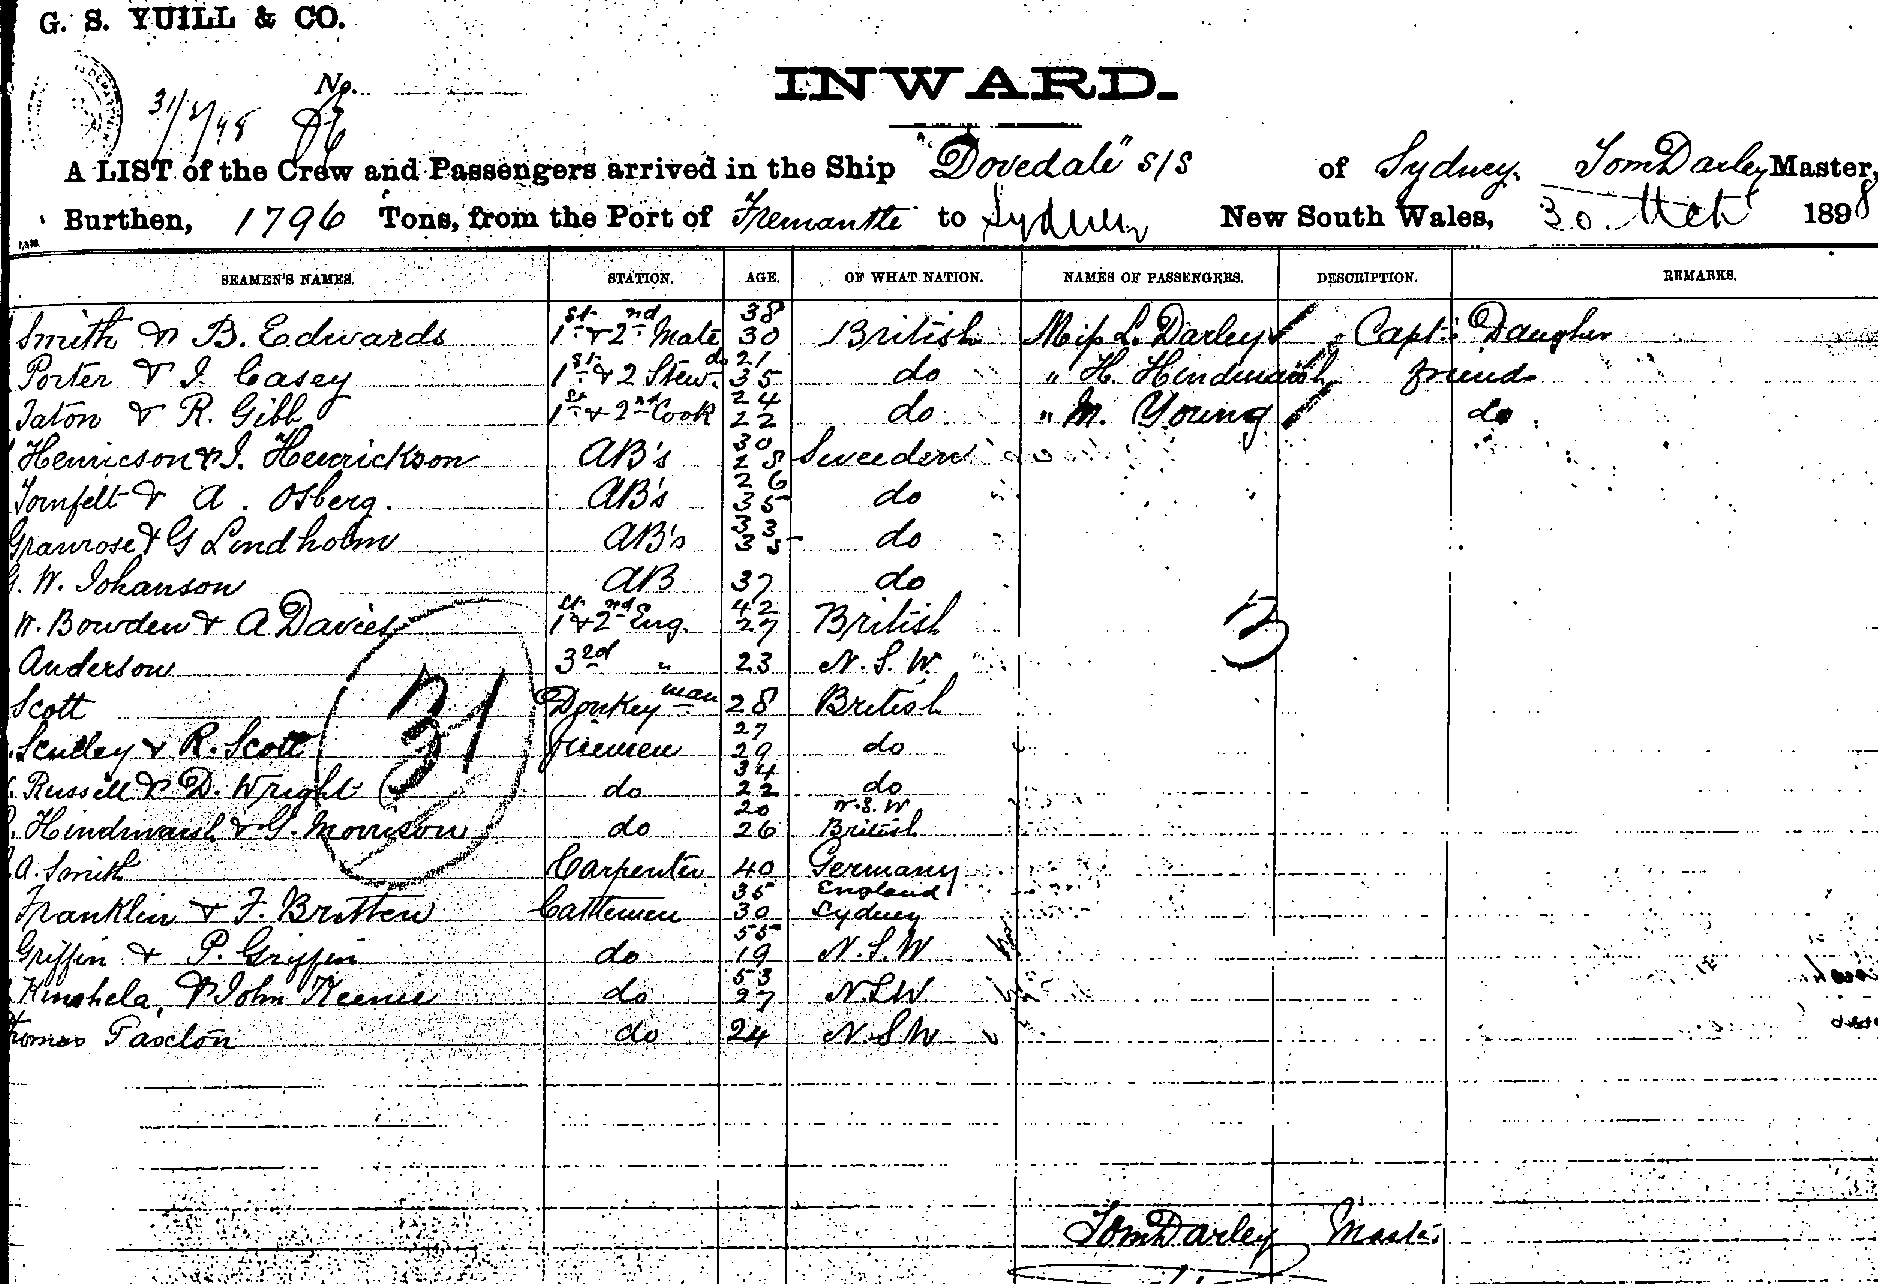 G. S. YUILL & CO.
INWARD.
31/3/98 No. 86
A LIST of the Crew and Passengers arrived in the Ship "Dovedale" s/s of Sydney. Tom Darley Master,
Burthen, 1796 Tons, from the Port of Fremantle to Sydney New South Wales, 30 Mch 1898
SEAMEN'S NAMES. STATION. AGE. OF WHAT NATION. NAMES OF PASSENGERS. DESCRIPTION. REMARKS.
Smith & B. Edwards 1st & 2nd Mate 38 30 British Miss L. Darley Capt's Daughter
Porter & J. Casey 1st & 2 Stewd 21 35 do " H. Hindmarsh friend
Taton & R. Gibb 1st & 2nd Cook 24 22 do " M. Young do
Henricson & J. Henrickson AB's 30 28 Sweeden
Tornfelt & A. Osberg. AB's 26 35 do
Granrose & G Lindholm AB's 33 35 do
G. W. Johanson AB 37 do
W. Bowden & A Davies 1st & 2nd Eng. 42 27 British
Anderson 3rd " 23 N. S. W. 3
Scott Donkeyman 28 British
Sculley & R. Scott firemen 27 29 do
31
Russell & D. Wright do 34 22 do
Hindmarsh & G. Morrison do 20 26 N.S.W British
A. Smith Carpenter 40 Germany
Franklin & F. Britten Cattlemen 35 30 England Sydney
Griffin & P. Griffin do 55 19 N.S.W
Kinshela, & John Keenie do 53 27 N.S.W
Thomas Paxton do 24 N.S.W
Tom Darley Master